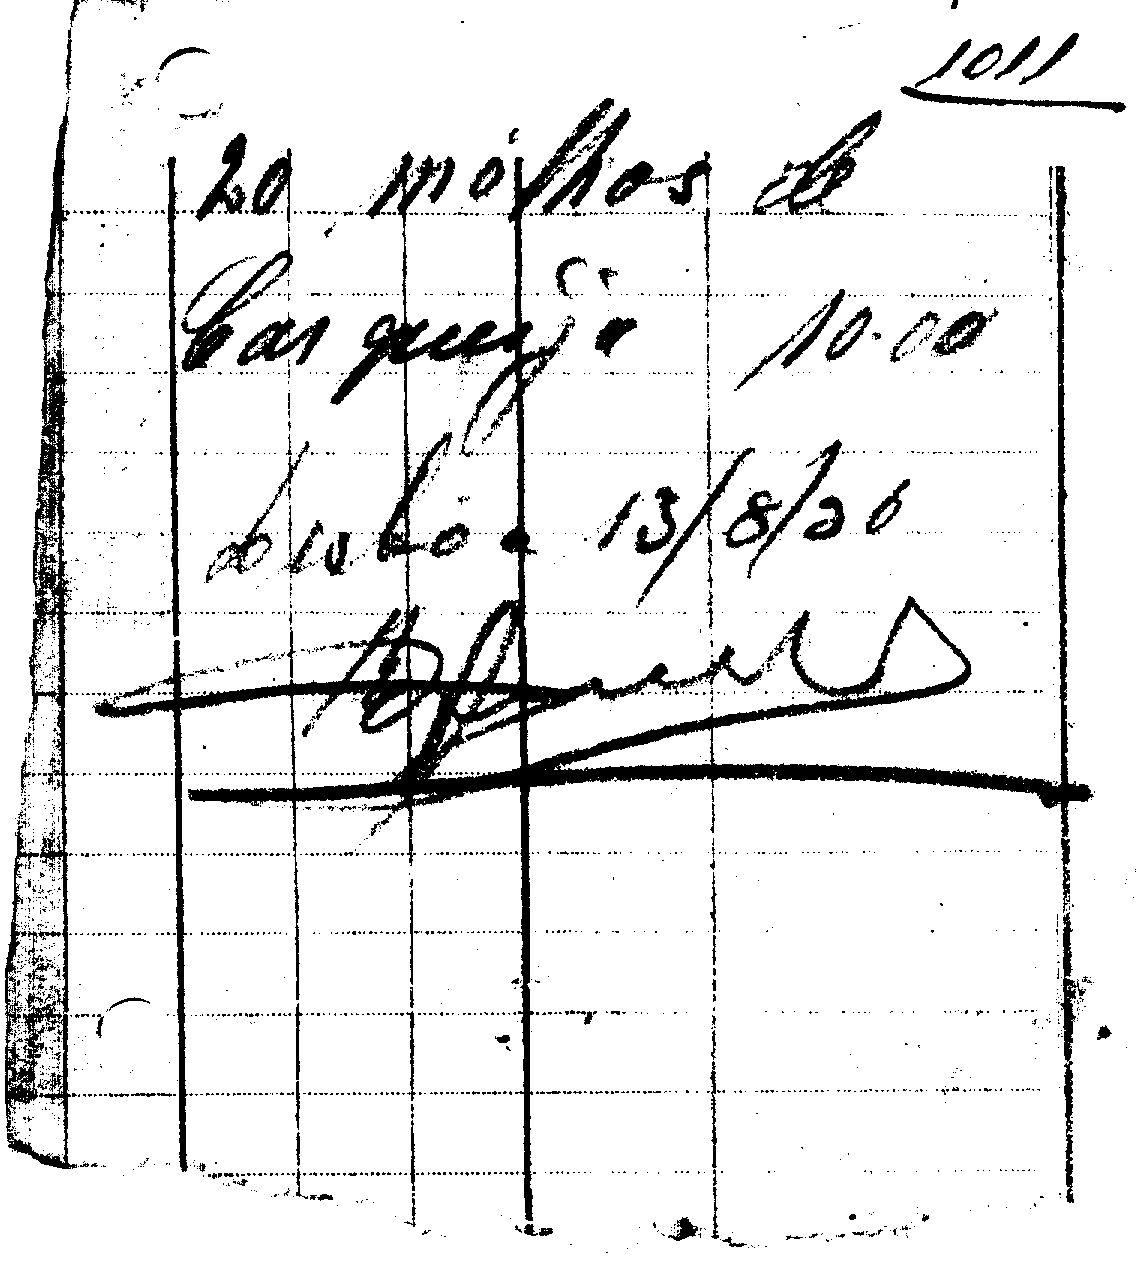 1011
20 molhos de
Carqueja 10.00
Lisboa 13/8/26